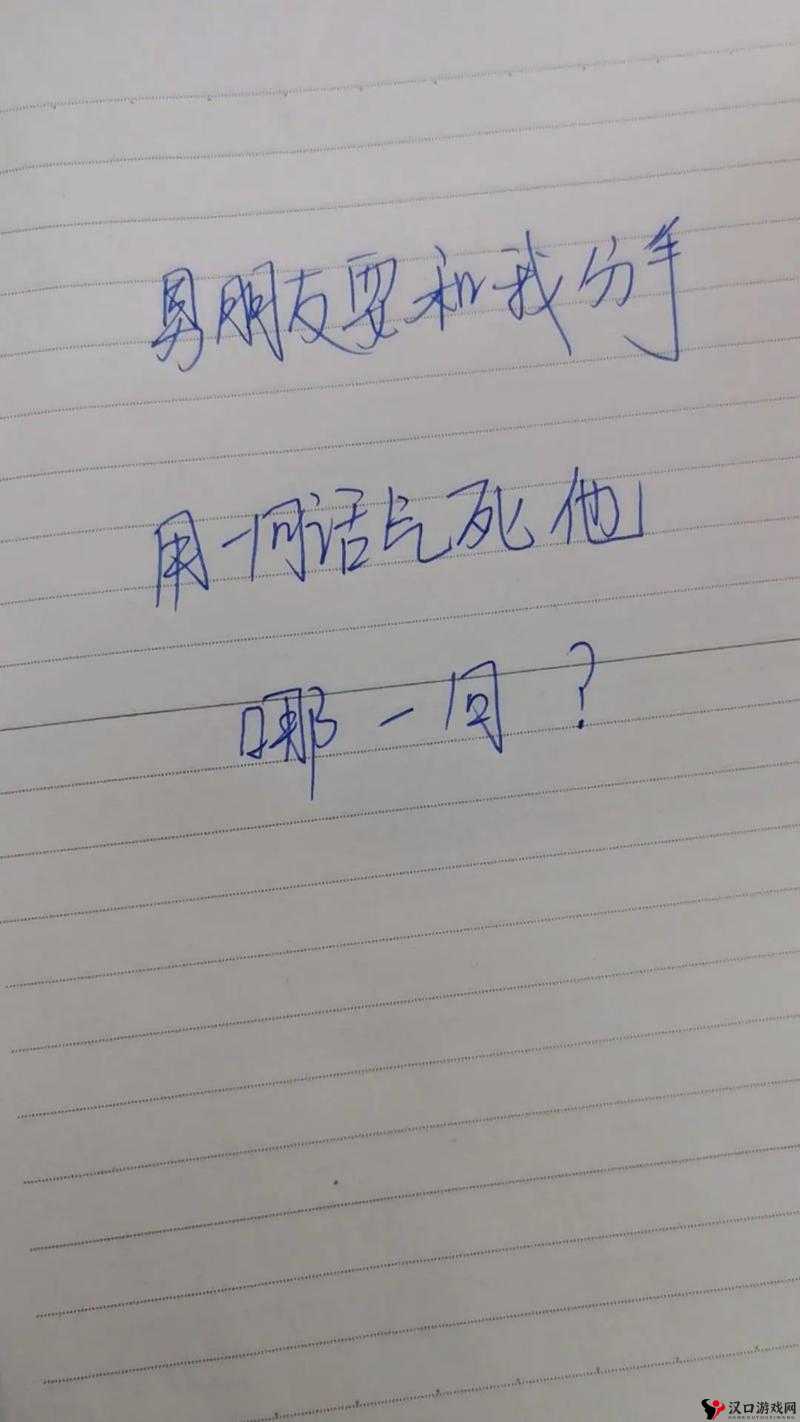 男朋友要和我分手
用一句话气死他
哪一句?
汉口游戏网